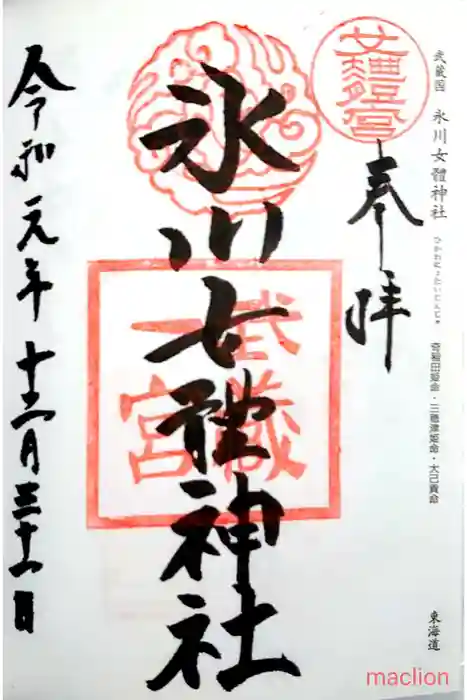 武蔵国 氷川女體神社 ひかわにょたいじんじゃ 奇稲田姫命・三穂津姫命・大己貴命 東海道
奉拝
氷川女體神社
武蔵
一宮
令和元年十二月三十一日
maclion